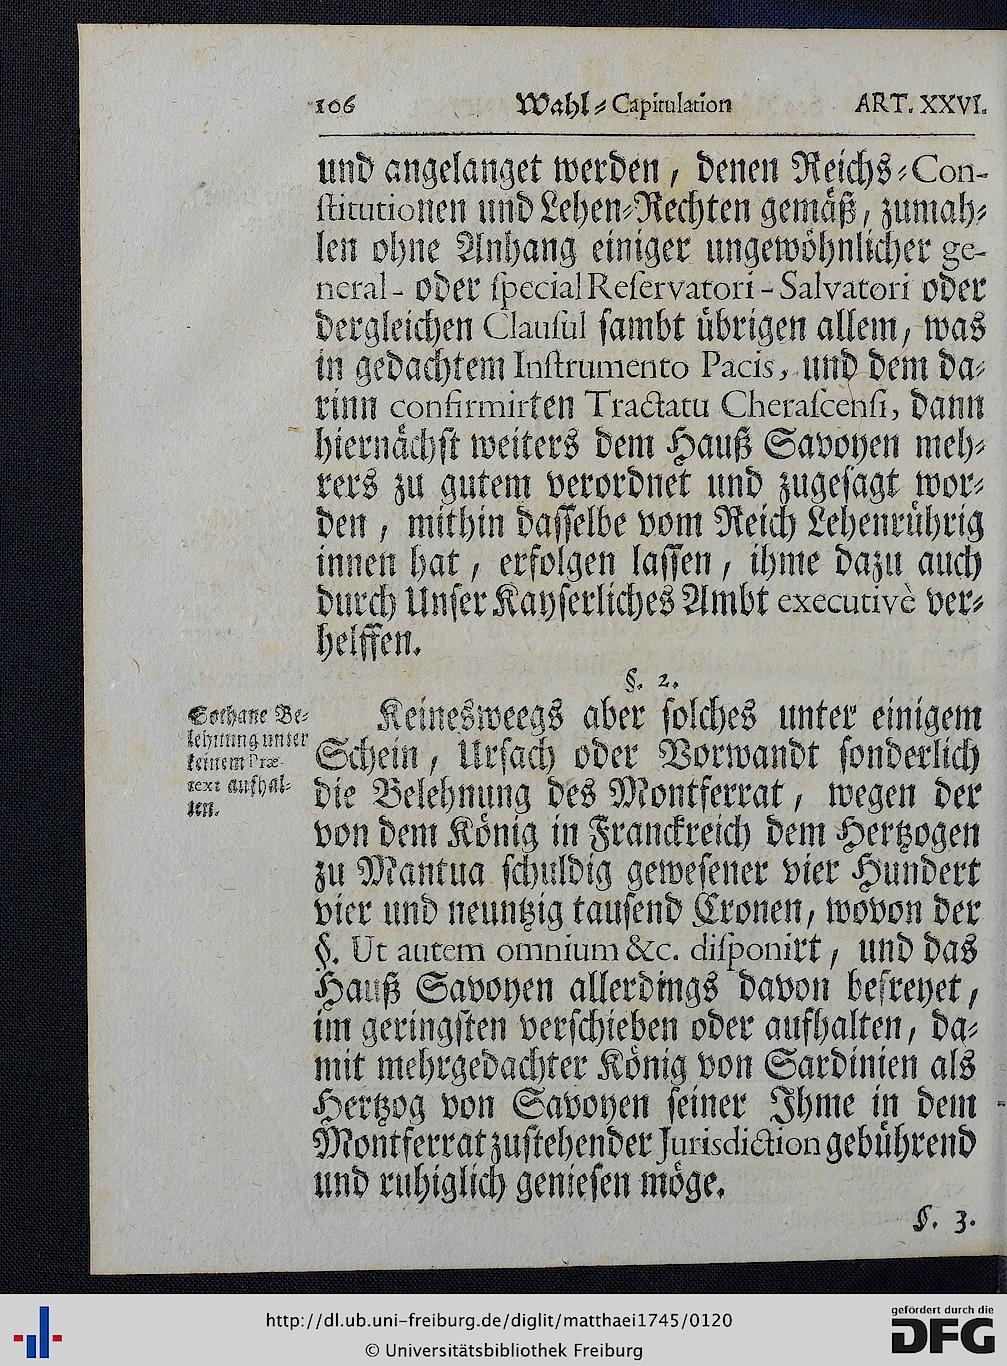 106 Wahl-Capitulation ART. XXVI.
und angelanget werden, denen Reichs-Con-
stitutionen und Lehen-Rechten gemäß, zumah-
len ohne Anhang einiger ungewöhnlicher ge-
neral- oder special Reservatori-Salvatori oder
dergleichen Clausul sambt übrigen allem, was
in gedachtem Instrumento Pacis, und dem da-
rinn confirmirten Tractatu Cherascensi, dann
hiernächst weiters dem Hauß Savoyen meh-
rers zu gutem verordnet und zugesagt wor-
den, mithin dasselbe vom Reich Lehenrührig
innen hat, erfolgen lassen, ihme dazu auch
durch Unser Kayserliches Ambt executivè ver-
helffen.
§. 2.
Sothane Be-
lehnung unter
keinem Præ-
text aufhal-
ten.
Keinesweegs aber solches unter einigem
Schein, Ursach oder Vorwandt sonderlich
die Belehnung des Montferrat, wegen der
von dem König in Franckreich dem Hertzogen
zu Mantua schuldig gewesener vier Hundert
vier und neuntzig tausend Cronen, wovon der
§. Ut autem omnium &c. disponirt, und das
Hauß Savoyen allerdings davon befreyet,
im geringsten verschieben oder aufhalten, da-
mit mehrgedachter König von Sardinien als
Hertzog von Savoyen seiner Ihme in dem
Montferrat zustehender Jurisdiction gebührend
und ruhiglich geniesen möge.
§. 3.
http://dl.ub.uni-freiburg.de/diglit/matthaei1745/0120
© Universitätsbibliothek Freiburg
gefördert durch die
DFG